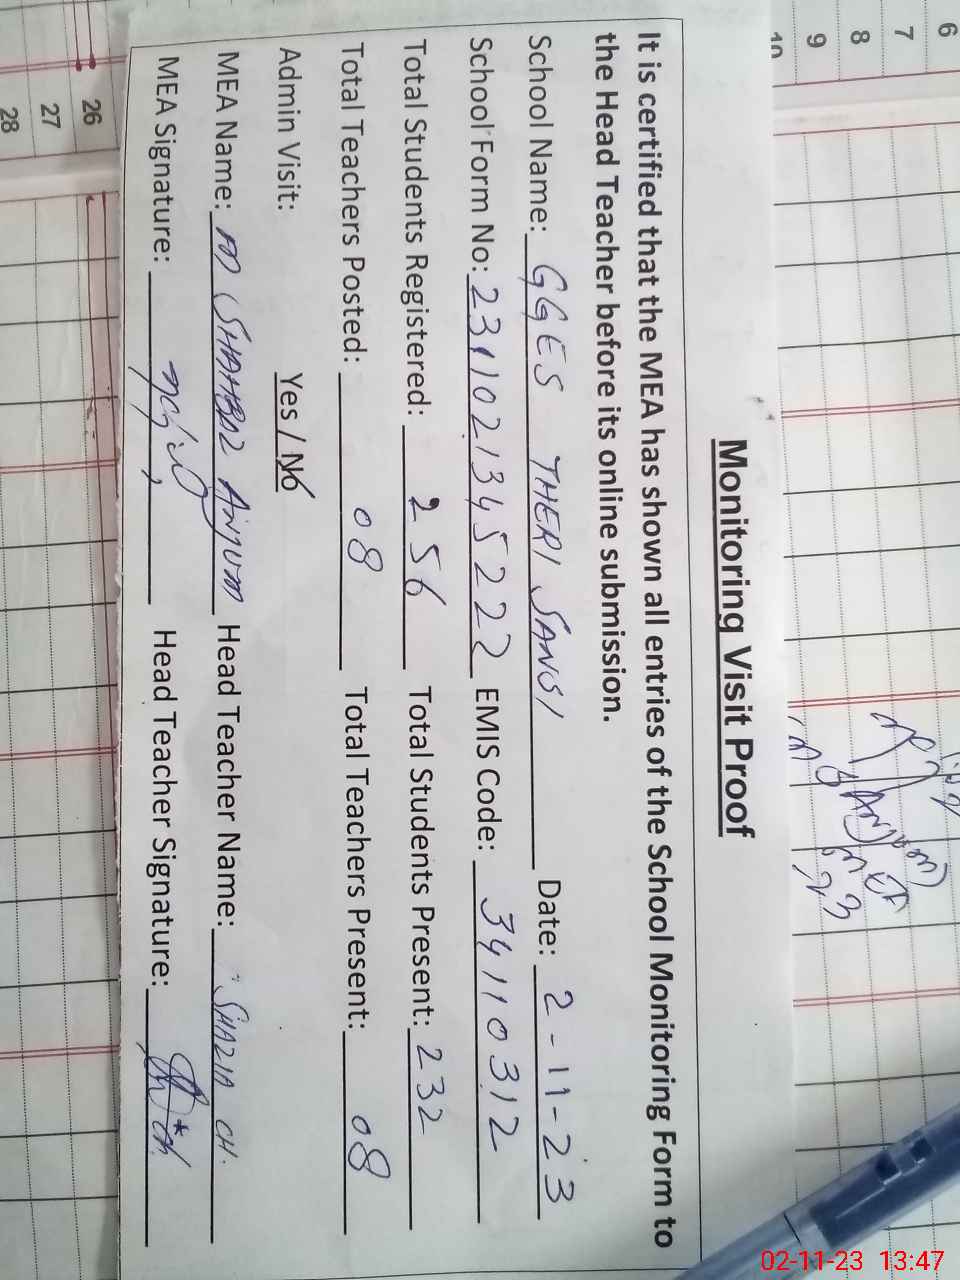 Monitoring Visit Proof
It is certified that the MEA has shown all entries of the School Monitoring Form to
the Head Teacher before its online submission.
School Name: GGES THERI SANSI Date: 2-11-23
School Form No: 2311021345222 EMIS Code: 34110312
Total Students Registered: 256 Total Students Present: 232
Total Teachers Posted: 08 Total Teachers Present: 08
Admin Visit: Yes / No
MEA Name: M SHAHBAZ ANJUM Head Teacher Name: SHAZIA CH.
MEA Signature: Head Teacher Signature:
6
7
8
9
10
26
27
28
02-11-23 13:47